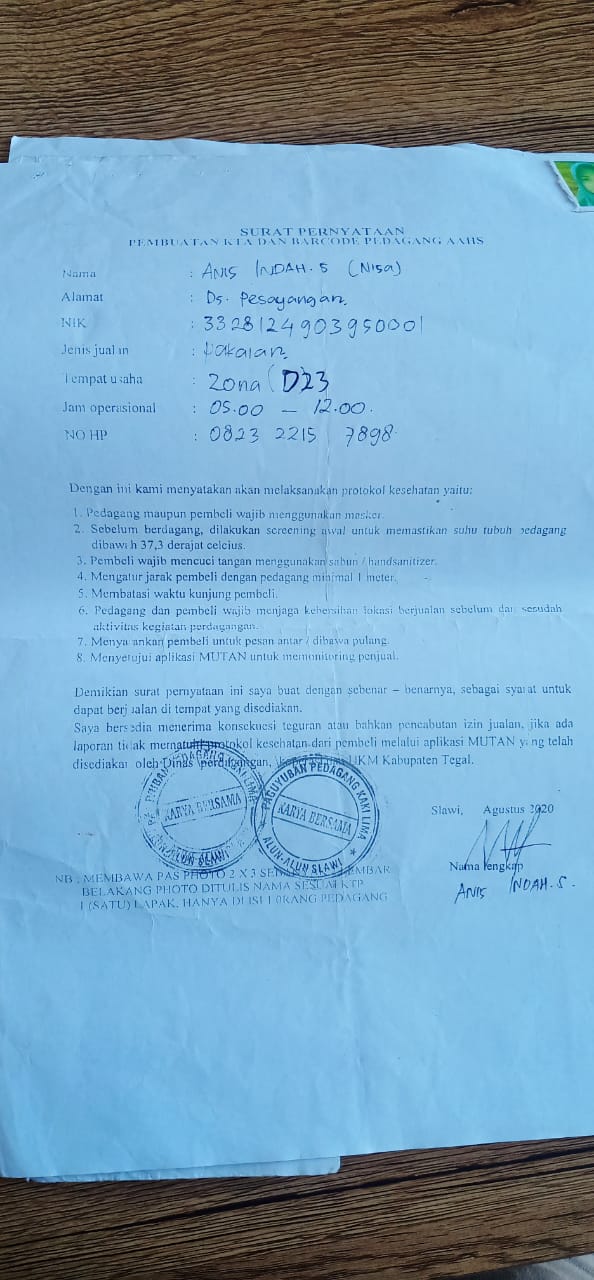 SURAT PERNYATAAN
PEMBUATAN KTA DAN BARCODE PEDAGANG AAHS
Nama : ANIS INDAH. S (Nisa)
Alamat : Ds. Pesayangan.
NIK : 3328124903950001
Jenis jualan : Pakaian.
Tempat usaha : Zona (D23
Jam operasional : 05.00 – 12.00.
NO HP : 0823 2215 7898.
Dengan ini kami menyatakan akan melaksanakan protokol kesehatan yaitu:
1. Pedagang maupun pembeli wajib menggunakan masker.
2. Sebelum berdagang, dilakukan screening awal untuk memastikan suhu tubuh pedagang
dibawah 37,3 derajat celcius.
3. Pembeli wajib mencuci tangan menggunakan sabun / handsanitizer.
4. Mengatur jarak pembeli dengan pedagang minimal 1 meter.
5. Membatasi waktu kunjung pembeli.
6. Pedagang dan pembeli wajib menjaga kebersihan lokasi berjualan sebelum dan sesudah
aktivitas kegiatan perdagangan.
7. Menyarankan pembeli untuk pesan antar / dibawa pulang.
8. Menyetujui aplikasi MUTAN untuk memonitoring penjual.
Demikian surat pernyataan ini saya buat dengan sebenar – benarnya, sebagai syarat untuk
dapat berjualan di tempat yang disediakan.
Saya bersedia menerima konsekuesi teguran atau bahkan pencabutan izin jualan, jika ada
laporan tidak mematuhi protokol kesehatan dari pembeli melalui aplikasi MUTAN yang telah
disediakan oleh Dinas perdagangan, UKM Kabupaten Tegal.
PAGUYUBAN PEDAGANG KAKI LIMA
KARYA BERSAMA
ALUN-ALUN SLAWI
PAGUYUBAN PEDAGANG KAKI LIMA
KARYA BERSAMA
ALUN-ALUN SLAWI
Slawi, Agustus 2020
Nama lengkap
ANIS INDAH. S.
NB : MEMBAWA PAS PHOTO 2 X 3 LEMBAR
BELAKANG PHOTO DITULIS NAMA SESUAI KTP
1 (SATU) LAPAK, HANYA DI ISI 1 ORANG PEDAGANG